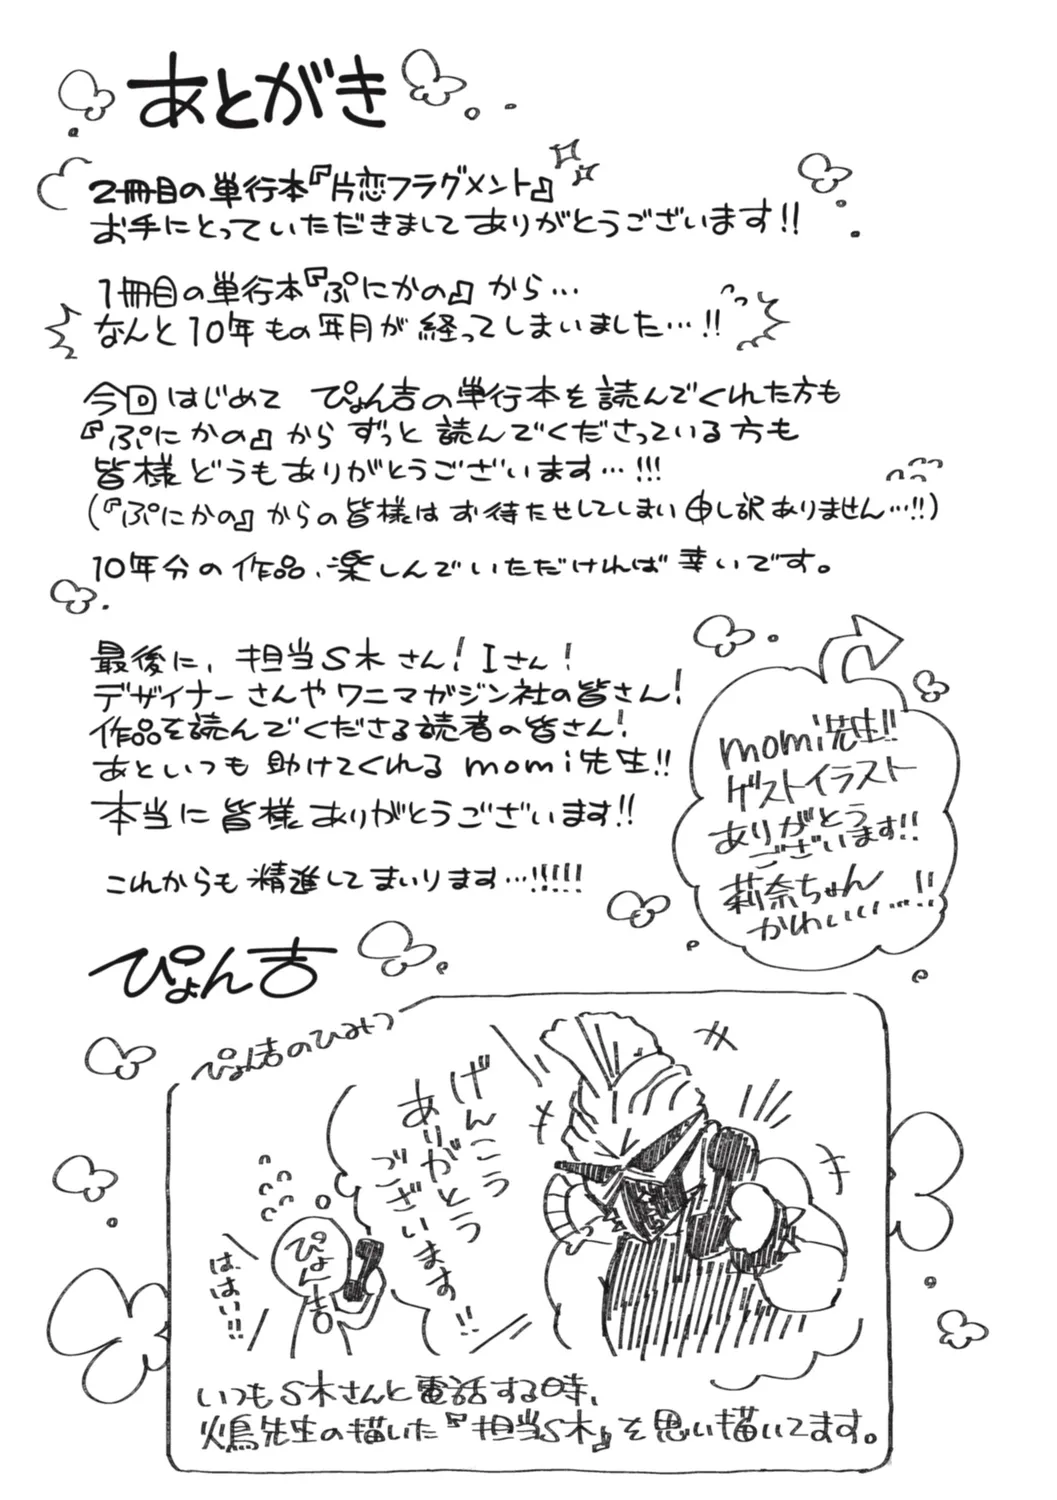 あとがき
2冊目の単行本『片恋フラグメント』
お手にとっていただきましてありがとうございます!!
1冊目の単行本『ぷにかの』から…
なんと10年もの年月が経ってしまいました…!!
今回はじめて ぴょん吉の単行本を読んでくれた方も
『ぷにかの』からずっと読んでくださっている方も
皆様どうもありがとうございます…!!!
(『ぷにかの』からの皆様はお待たせしてしまい申し訳ありません…!!)
10年分の作品、楽しんでいただければ幸いです。
最後に、担当S木さん!Iさん!
デザイナーさんやワニマガジン社の皆さん!
作品を読んでくださる読者の皆さん!
あといつも助けてくれるmomi先生!!
本当に皆様ありがとうございます!!
これからも精進してまいります…!!!!!
ぴょん吉
momi先生!!
ゲストイラスト
ありがとう
ございます!!
莉奈ちゃん
かわいい…!!
ぴょん吉のひみつ
げんこう
ありがとう
ございます!!
ぴょん吉
は、はい!!
いつもS木さんと電話する時、
先生の描いた『担当S木』を思い描いてます。